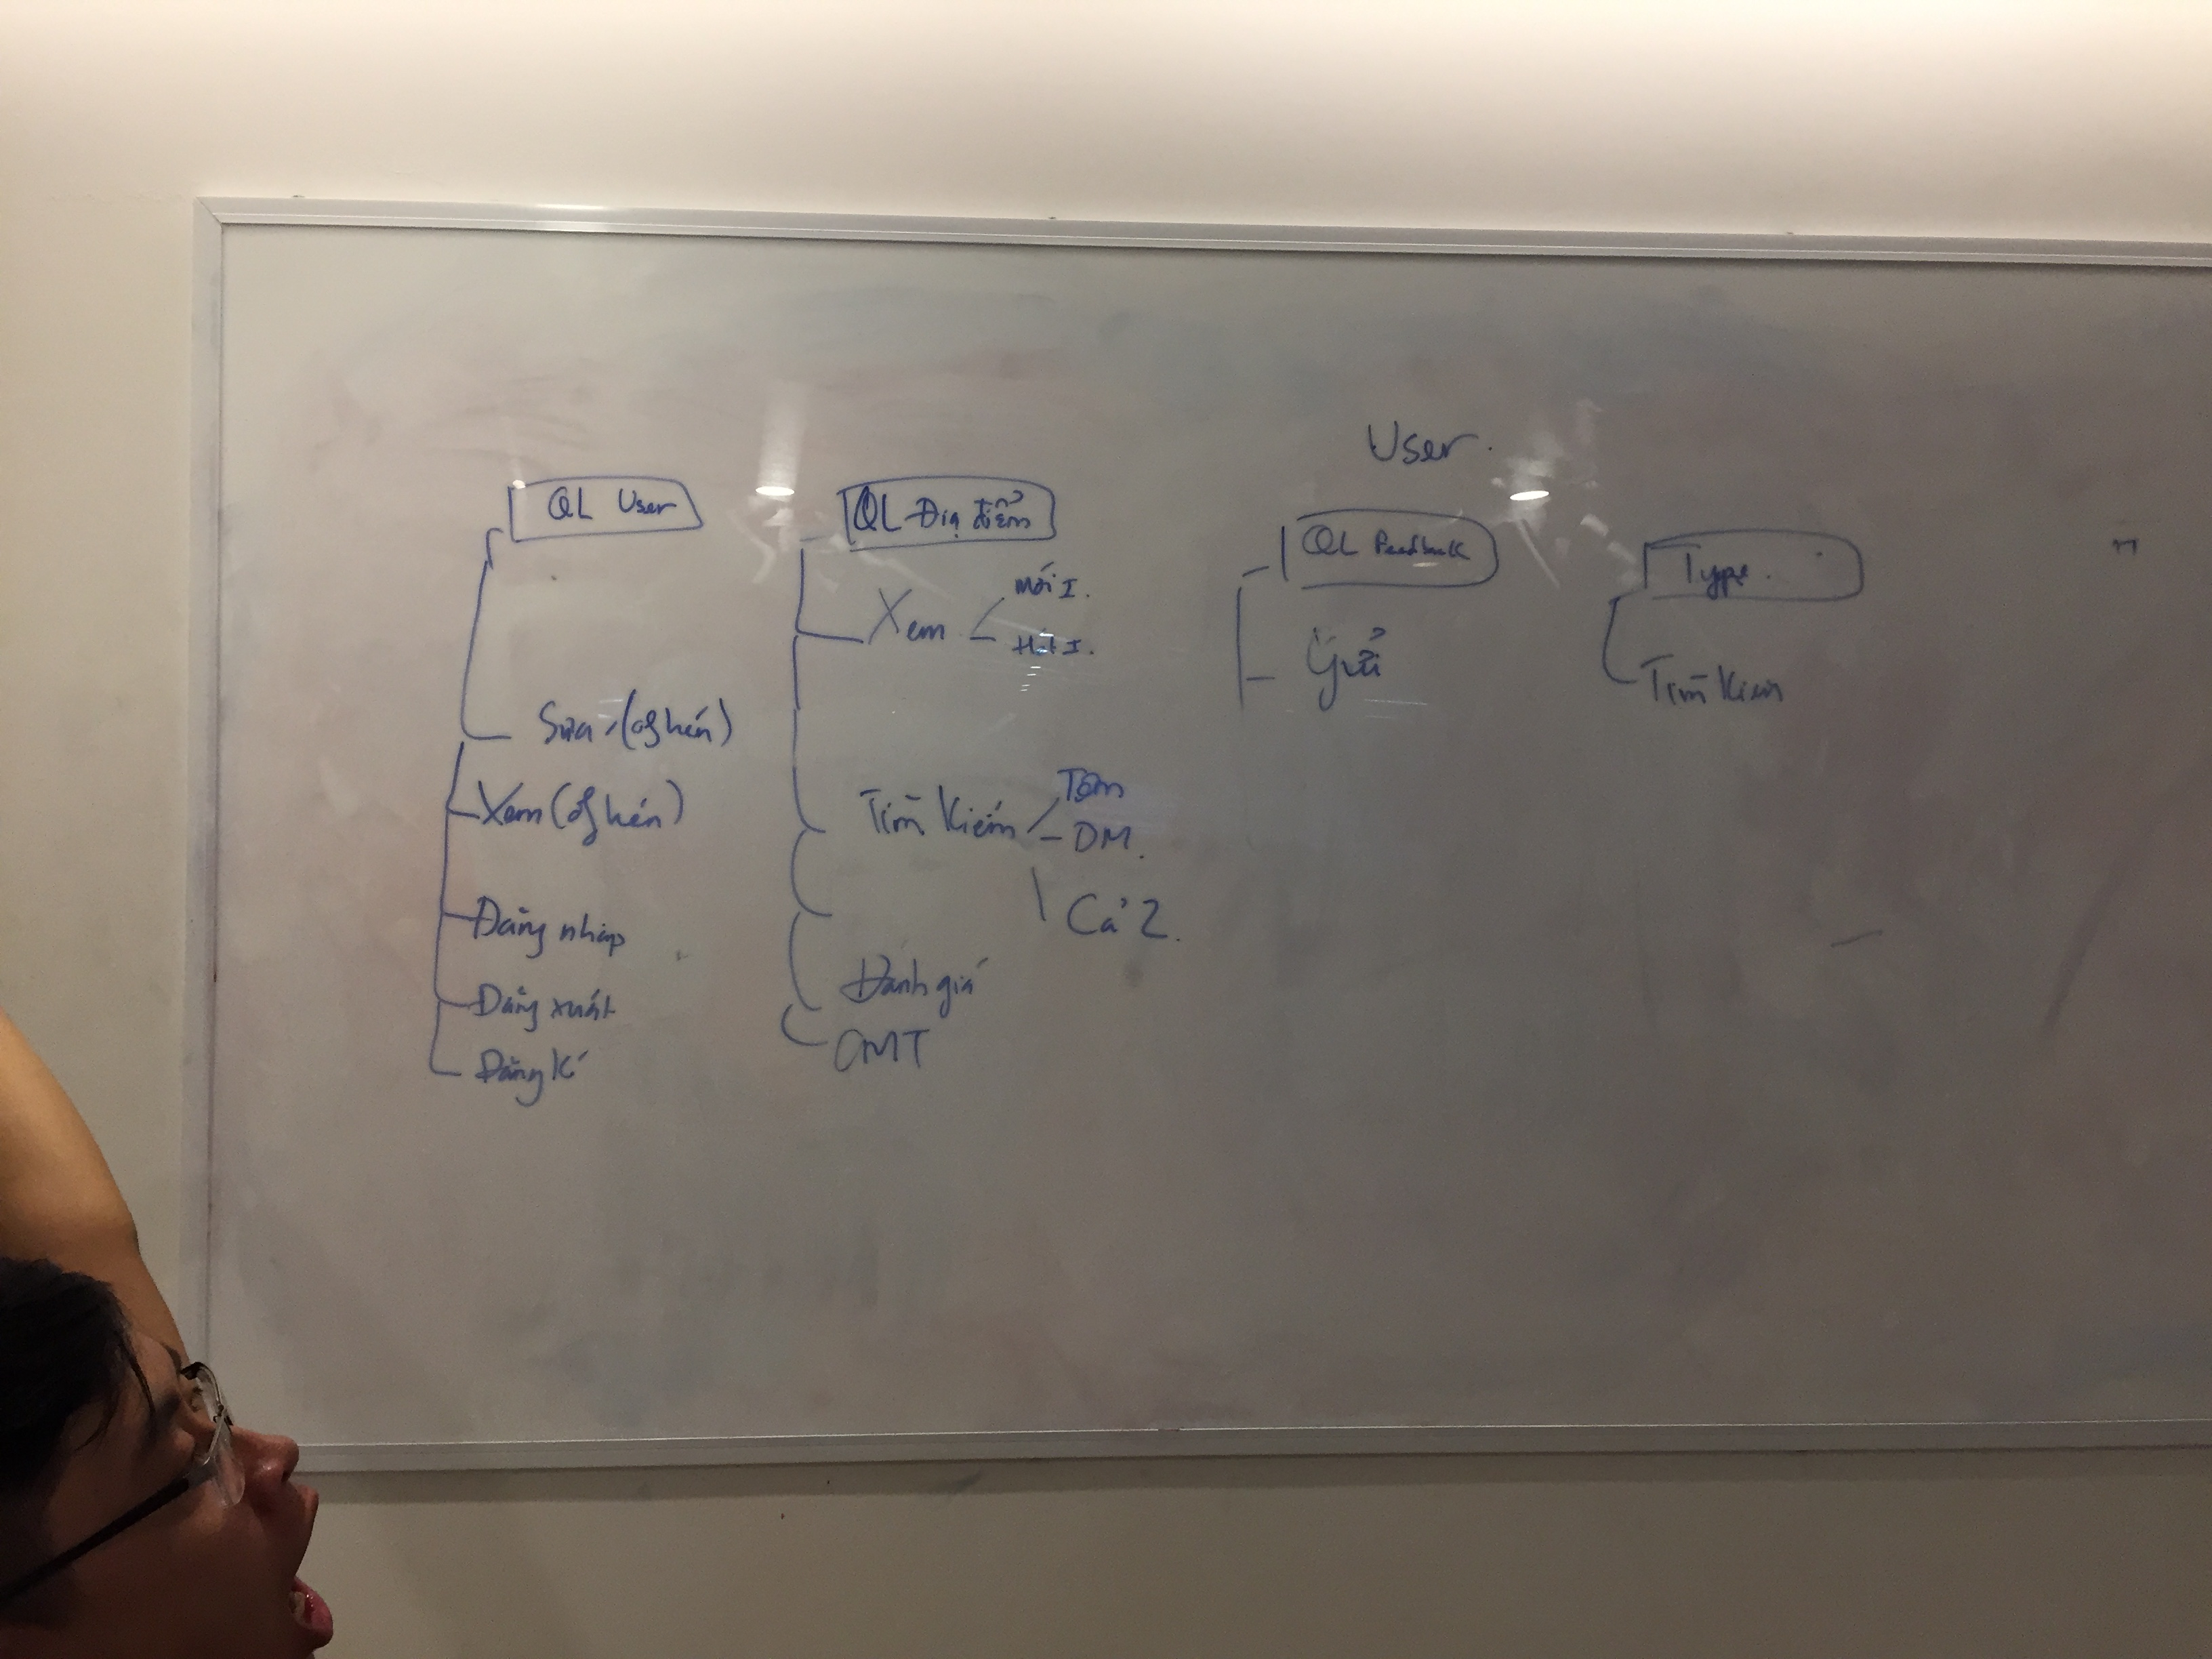 User.
QL User
Sửa (cá nhân)
Xem (cá nhân)
Đăng nhập
Đăng xuất
Đăng kí
QL Địa điểm
Xem
Mới I.
Hót I.
Tìm Kiếm
Tên
DM.
Cả 2.
Đánh giá
CMT
QL Feedback
Gửi
Type.
Tìm Kiếm